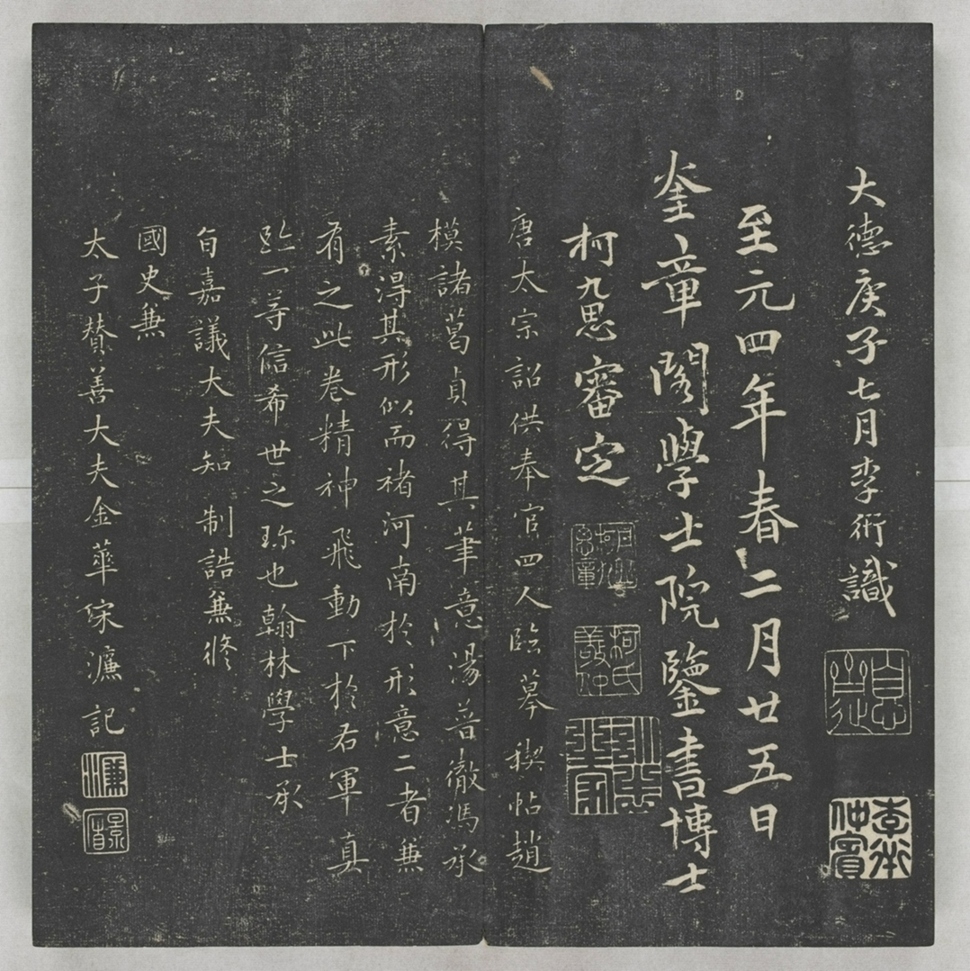 大德庚子七月李衎識
至元四年春二月廿五日
奎章閣學士院鑒書博士
柯九思審定
唐太宗詔供奉官四人臨摹禊帖趙
模諸葛貞得其筆意湯普徹馮承
素淂其形似而褚河南於形意二者兼
有之此卷精神飛動下於右軍真
跡一等信希世之珎也翰林學士承
旨嘉議大夫知制誥兼修
國史兼
太子賛善大夫金華宋濂記
李衎
仲賓
柯氏
敬仲